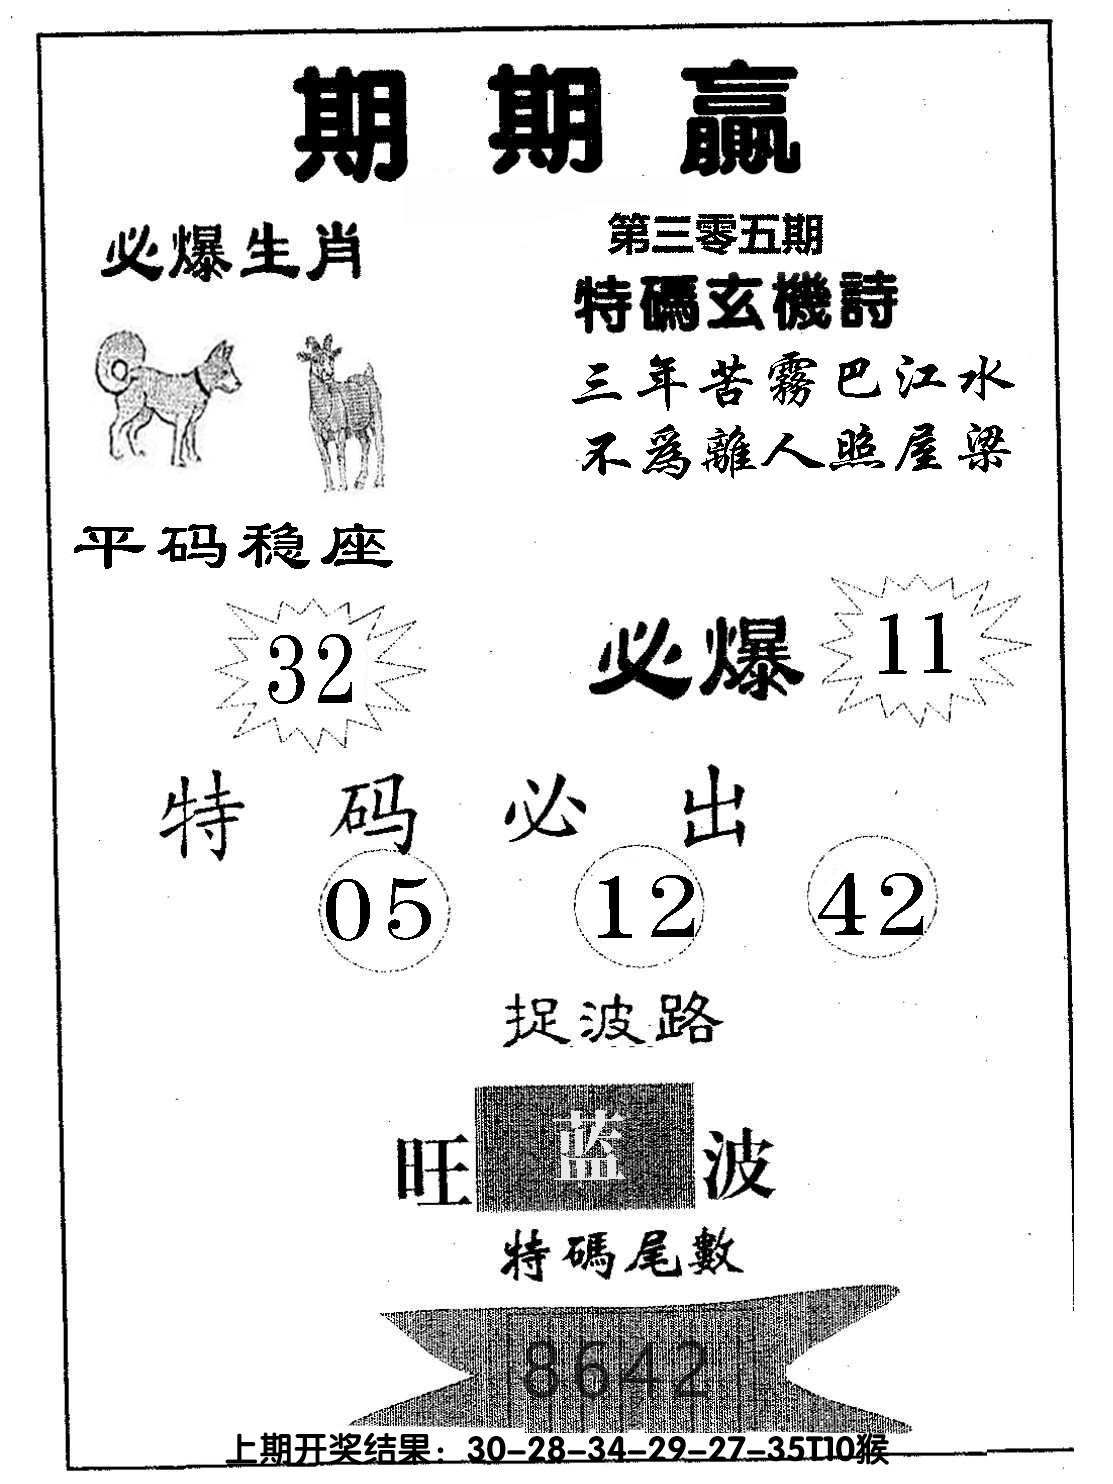 期期赢
必爆生肖
第三零五期
特碼玄機詩
三年苦霧巴江水
不為離人照屋梁
平码稳座
32
必爆 11
特码必出
05 12 42
捉波路
旺 蓝 波
特碼尾數
8642
上期开奖结果：30-28-34-29-27-35T10猴